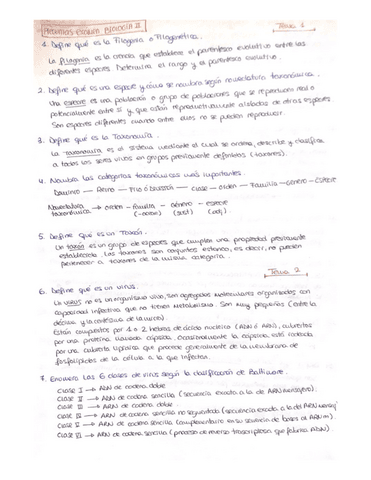 Preguntas Examen Biología II
Tema 1
1. Define qué es la Filogenia o Filogenética.
La Filogenia es la ciencia que establece el parentesco evolutivo entre las
diferentes especies. Determina el rango y el parentesco evolutivo.
2. Define qué es una especie y cómo se nombra según nomenclatura taxonómica.
Una especie es una población o grupo de poblaciones que se reproducen real o
potencialmente entre sí y que están reproductivamente aisladas de otras especies
Son especies diferentes cuando entre ellas no se pueden reproducir.
3. Define qué es la Taxonomía.
La taxonomía es el sistema mediante el cual se ordena, describe y clasifica
a todos los seres vivos en grupos previamente definidos (taxones).
4. Nombra las categorías taxonómicas más importantes.
Dominio — Reino — Filo ó División — Clase — Orden — Familia — Género — Especie
Nomenclatura → orden - familia - género - especie
taxonómica (sust) (adj)
5. Define qué es un Taxón.
Un taxón es un grupo de especies que cumplen una propiedad previamente
establecida. Los taxones son conjuntos estancos, es decir, no pueden
pertenecer a taxones de la misma categoría.
Tema 2
6. Define qué es un virus.
Un virus no es un organismo vivo, son agregados moleculares organizados con
capacidad infectiva que no tienen metabolismo. Son muy pequeños (entre la
décima y la centésima de la micra)
Están compuestos por 1 o 2 hebras de ácido nucleico (ADN ó ARN), cubiertos
por una proteína llamada cápsida. Ocasionalmente la cápsida está rodeada
por una cubierta lipídica que procede generalmente de la membrana de
fosfolípidos de la célula a la que infectan.
7. Enumera las 6 clases de virus según la clasificación de Baltimore.
Clase I → ADN de cadena doble
Clase II → ADN de cadena sencilla (secuencia exacta a la de ARN mensajero).
Clase III → ARN de cadena doble.
Clase IV → ARN de cadena sencilla no segmentado (secuencia exacta a la del ARN mensaj
Clase V → ARN de cadena sencilla (complementario en su secuencia de bases al ARN m)
Clase VI → ARN de cadena sencilla (proceso de reverso transcriptasa que fabrica ADN).